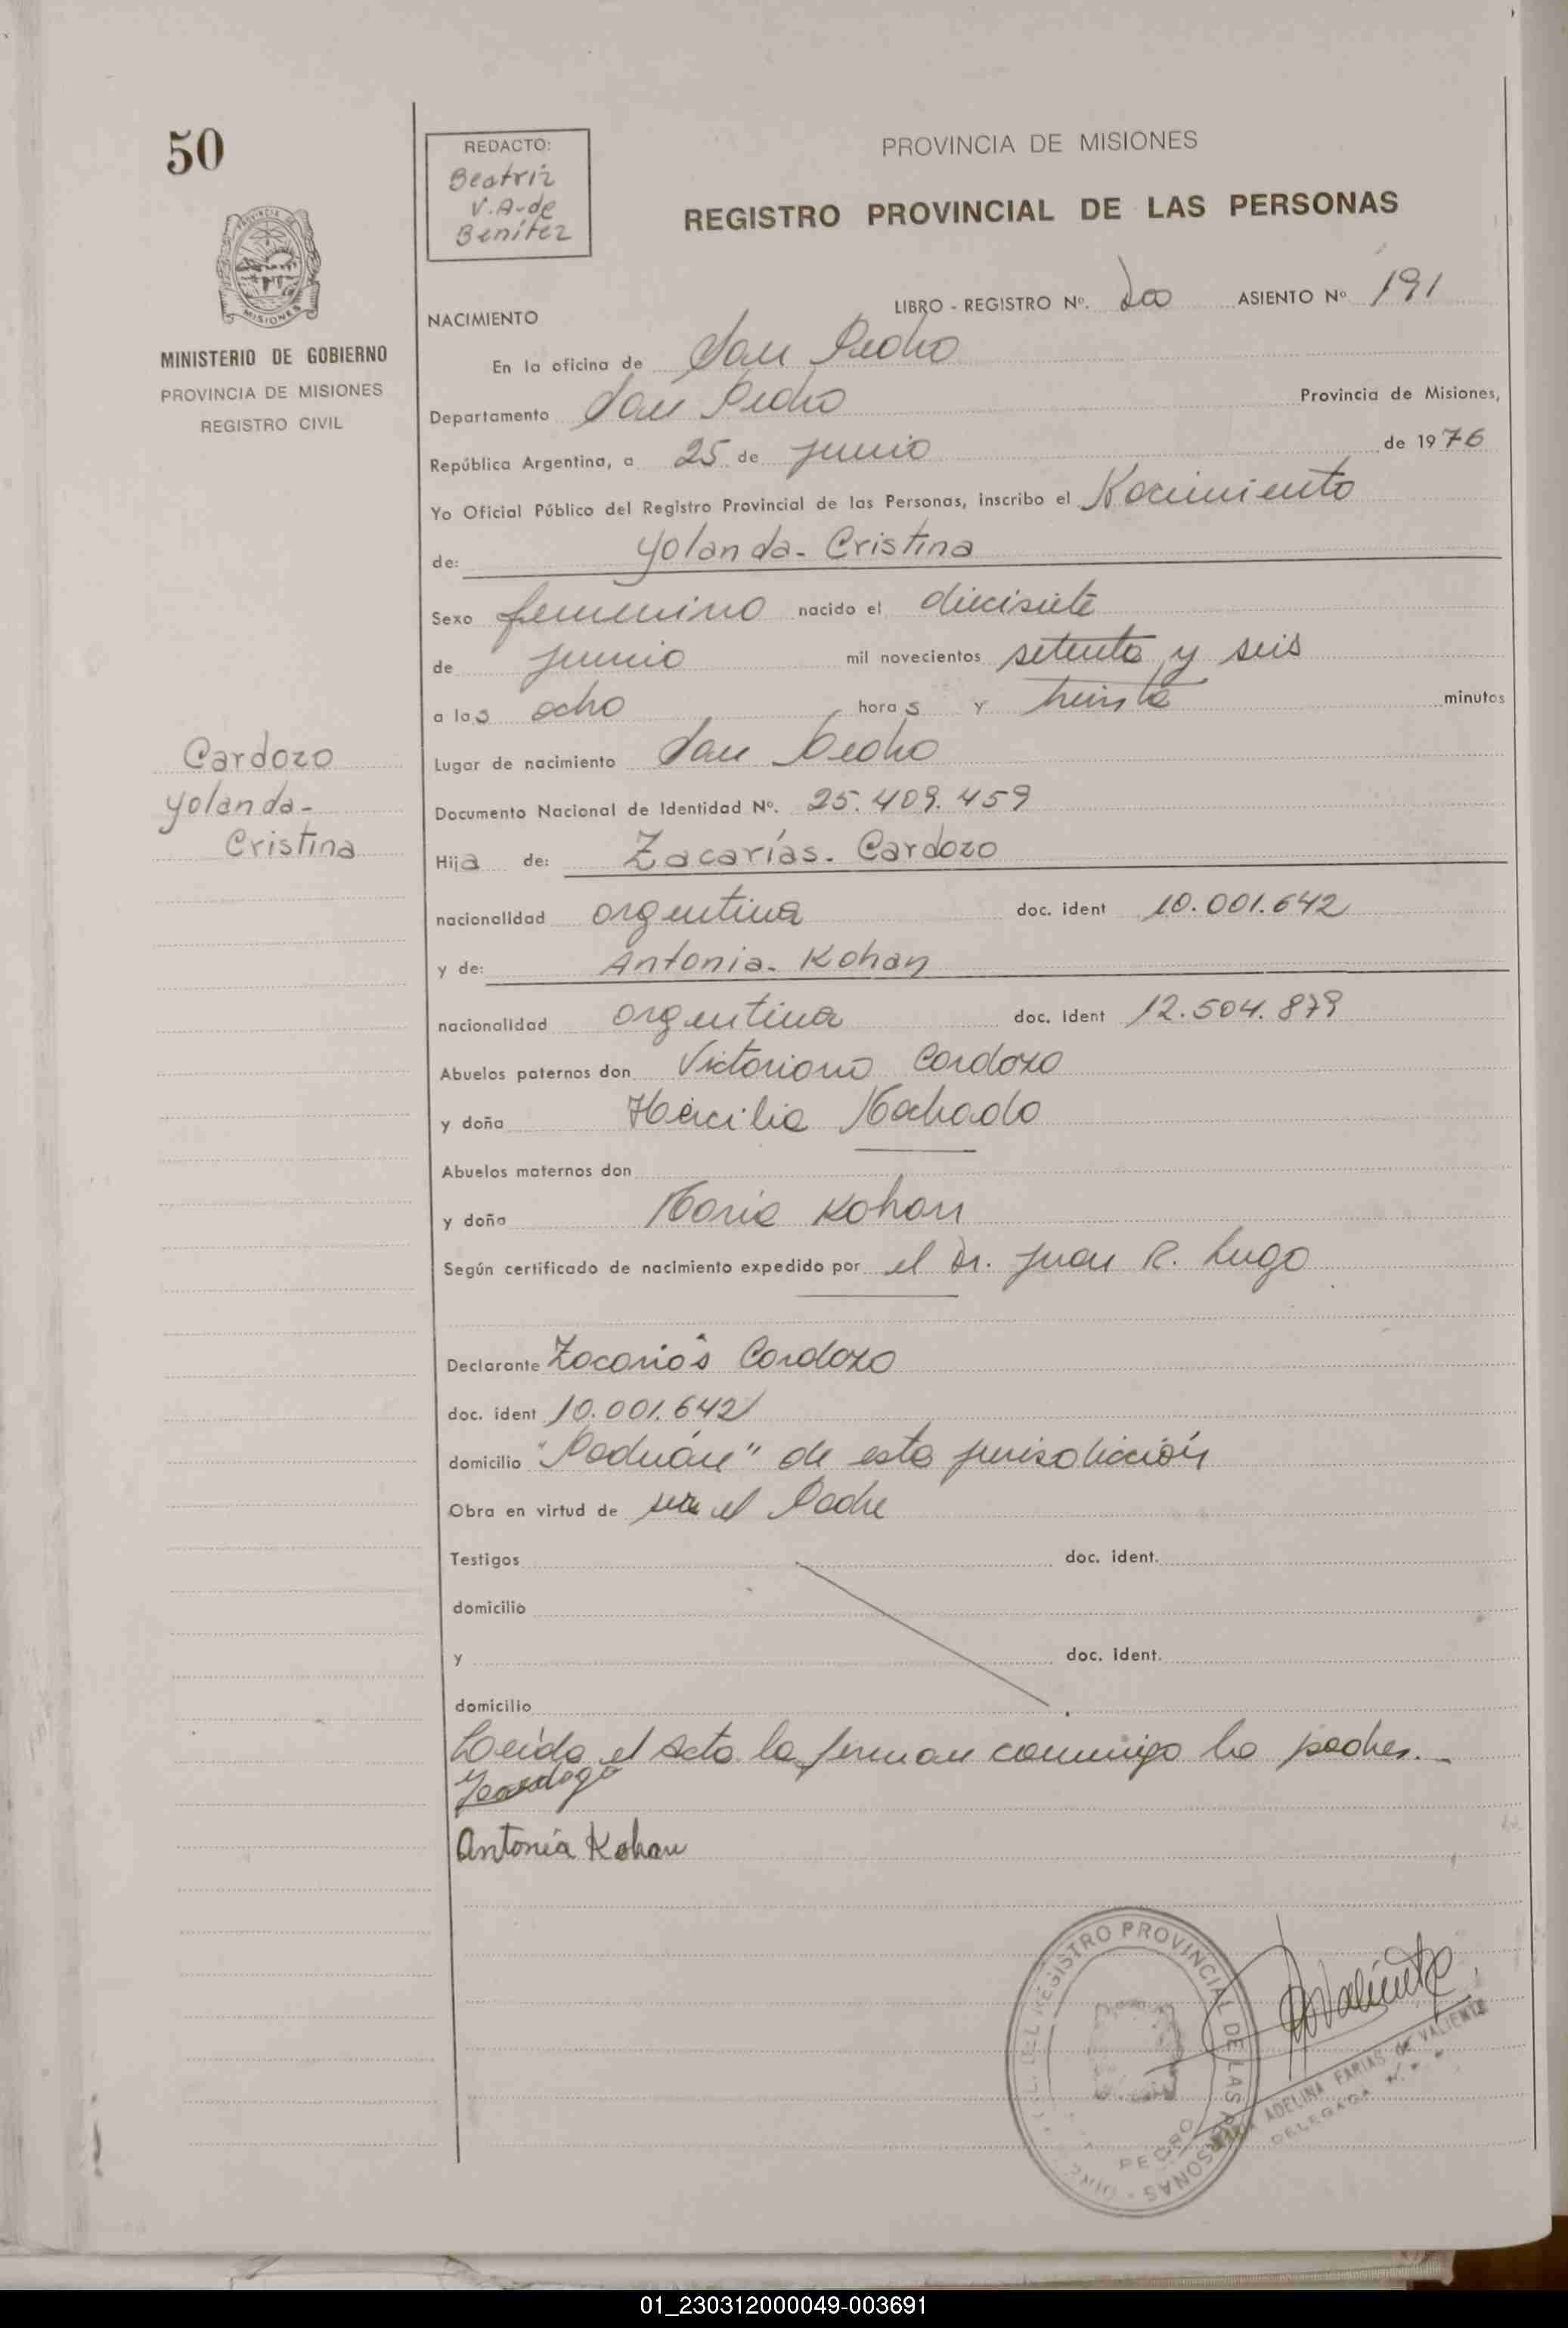 50
REDACTO:
Beatriz
V. A. de
Benítez
PROVINCIA DE MISIONES
REGISTRO PROVINCIAL DE LAS PERSONAS
MISIONES
MINISTERIO DE GOBIERNO
PROVINCIA DE MISIONES
REGISTRO CIVIL
LIBRO - REGISTRO Nº. Dos ASIENTO Nº 191
NACIMIENTO
En la oficina de San Pedro
Departamento San Pedro Provincia de Misiones,
República Argentina, a 25 de junio de 1976
Yo Oficial Público del Registro Provincial de las Personas, inscribo el Nacimiento
de: Yolanda - Cristina
Sexo femenino nacido el diecisiete
de junio mil novecientos setenta y seis
a las ocho horas y treinta minutos
Cardozo
Yolanda -
Cristina
Lugar de nacimiento San Pedro
Documento Nacional de Identidad Nº. 25.409.459
Hija de: Zacarías - Cardozo
nacionalidad argentina doc. ident 10.001.642
y de: Antonia - Kohan
nacionalidad argentina doc. ident 12.504.879
Abuelos paternos don Victoriano Cardozo
y doña Hercilia Machado
Abuelos maternos don
y doña Maria Kohan
Según certificado de nacimiento expedido por el Dr. Juan R. Lugo
Declarante Zacarias Cardozo
doc. ident 10.001.642
domicilio " " de esta jurisdicción
Obra en virtud de ser el Padre
Testigos doc. ident.
domicilio
y doc. ident.
domicilio
Leída el acta la firman conmigo lo padres.-
Antonia Kohan
DEL REGISTRO PROVINCIAL DE LAS PERSONAS
PEDRO
Valiente
ADELINA FARIAS de VALIENTE
DELEGADA
01_230312000049-003691